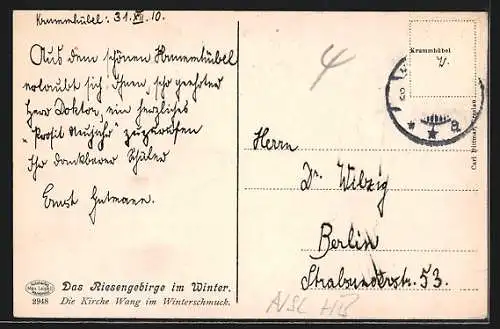 Krummhübel: 31.XII.10.
Aus dem schönen Krummhübel
erlaubt sich Ihnen, sehr geehrter
Herr Doktor, ein herzliches
"Prosit Neujahr" zuzurufen
Ihr dankbarer Schüler
Ernst Gutmann.
4
Krummhübel
Herrn
Dr. Wilzig
Berlin
Stralsunderstr. 53.
Das Riesengebirge im Winter.
2948 Die Kirche Wang im Winterschmuck.
* * a